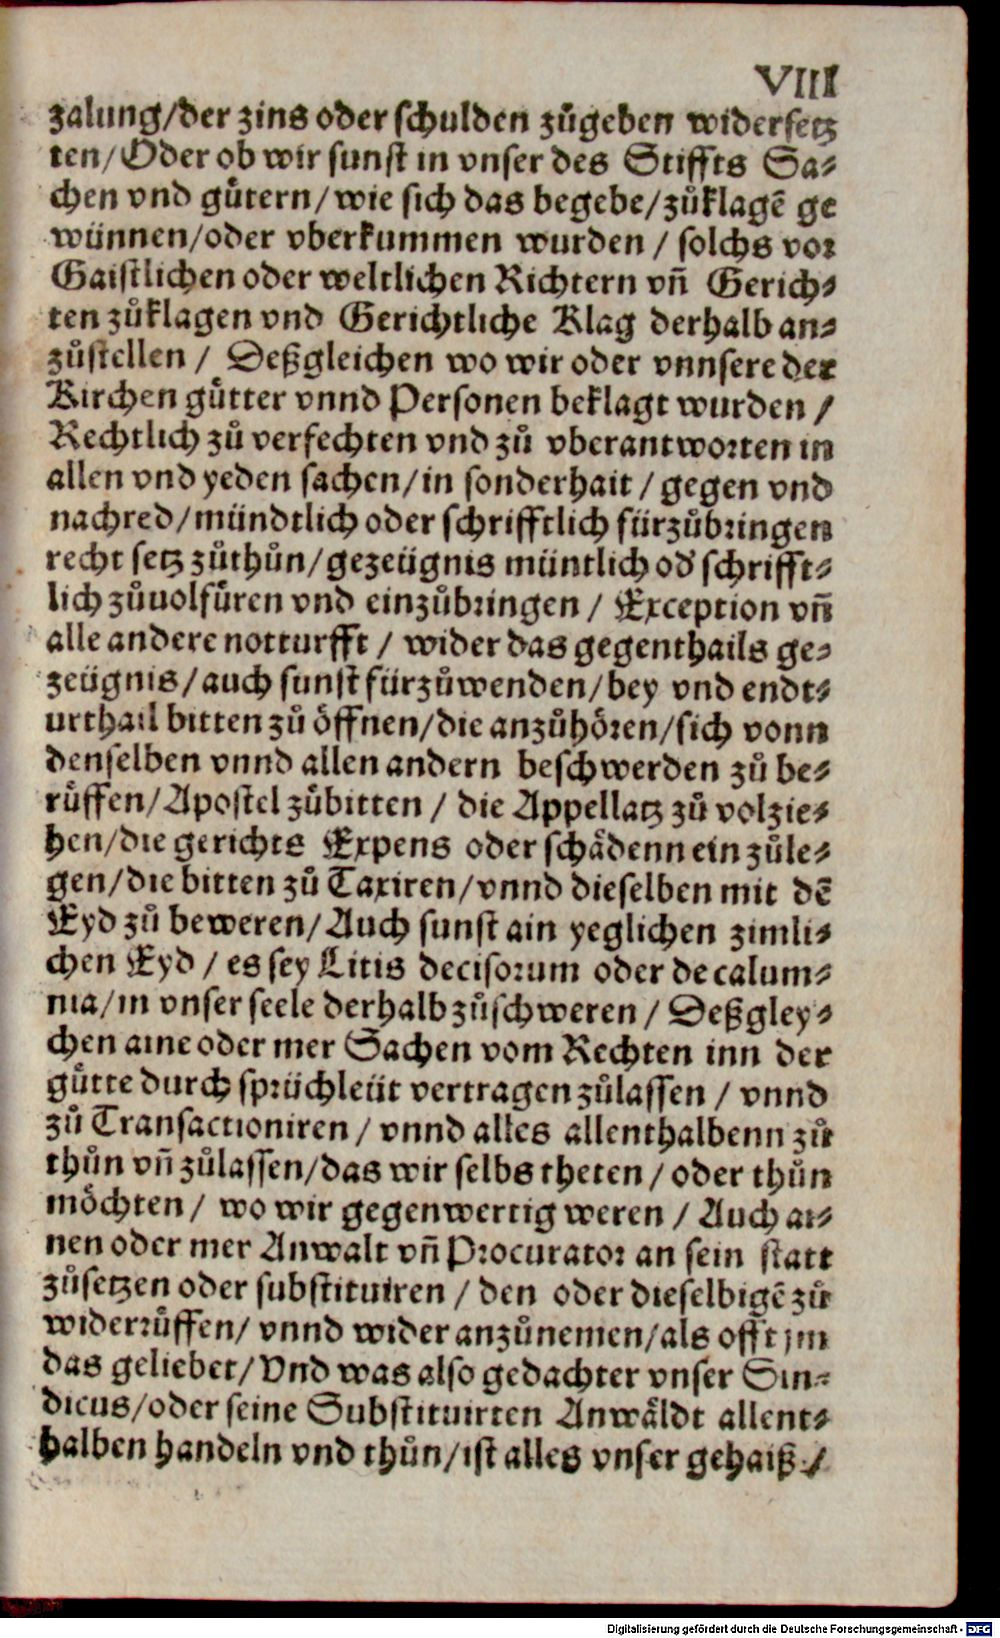 VIII
zalung/der zins oder schulden zůgeben widersetz
ten/Oder ob wir sunst in vnser des Stiffts Sa⸗
chen vnd gůtern/wie sich das begebe/zůklagē ge
wünnen/oder vberkummen wurden / solchs vor
Gaistlichen oder weltlichen Richtern vñ Gerich⸗
ten zůklagen vnd Gerichtliche Klag derhalb an⸗
zůstellen / Deßgleichen wo wir oder vnnsere der
Kirchen gůtter vnnd Personen beklagt wurden /
Rechtlich zů verfechten vnd zů vberantworten in
allen vnd yeden sachen/in sonderhait / gegen vnd
nachred/mündtlich oder schrifftlich fürzůbringen
recht setz zůthůn/gezeügnis müntlich od̕ schrifft⸗
lich zůuolfůren vnd einzůbringen / Exception vñ
alle andere notturfft / wider das gegenthails ge⸗
zeügnis/auch sunst fürzůwenden/bey vnd endt⸗
urthail bitten zů öffnen/die anzůhören/sich vonn
denselben vnnd allen andern beschwerden zů be⸗
růffen/Apostel zůbitten / die Appellatz zů volzie⸗
hen/die gerichts Expens oder schädenn ein zůle⸗
gen/die bitten zů Taxiren/vnnd dieselben mit dē
Eyd zů beweren/Auch sunst ain yeglichen zimli⸗
chen Eyd / es sey Litis decisorum oder de calum⸗
nia/in vnser seele derhalb zůschweren / Deßgley⸗
chen aine oder mer Sachen vom Rechten inn der
gůtte durch sprüchleüt vertragen zůlassen / vnnd
zů Transactioniren / vnnd alles allenthalbenn zů
thůn vñ zůlassen/das wir selbs theten / oder thůn
möchten / wo wir gegenwertig weren / Auch ai⸗
nen oder mer Anwalt vñ Procurator an sein statt
zůsetzen oder substituiren / den oder dieselbigē zů
widerrůffen/ vnnd wider anzůnemen/als offt jm
das geliebet/Vnd was also gedachter vnser Sin⸗
dicus/oder seine Substituirten Anwäldt allent⸗
halben handeln vnd thůn/ist alles vnser gehaiß /
Digitalisierung gefördert durch die Deutsche Forschungsgemeinschaft - DFG